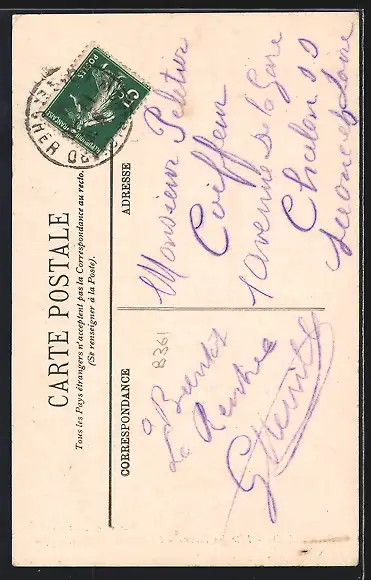 CARTE POSTALE
Tous les Pays étrangers n'acceptent pas la Correspondance au recto.
(Se renseigner à la Poste).
CORRESPONDANCE
ADRESSE
POSTES
5c
RÉPUBLIQUE FRANÇAISE
8361
à Bientôt
La Rentrée
Monsieur Peletier
Coiffeur
1 avenue de la Gare
Chalon s S
Saone et Loire